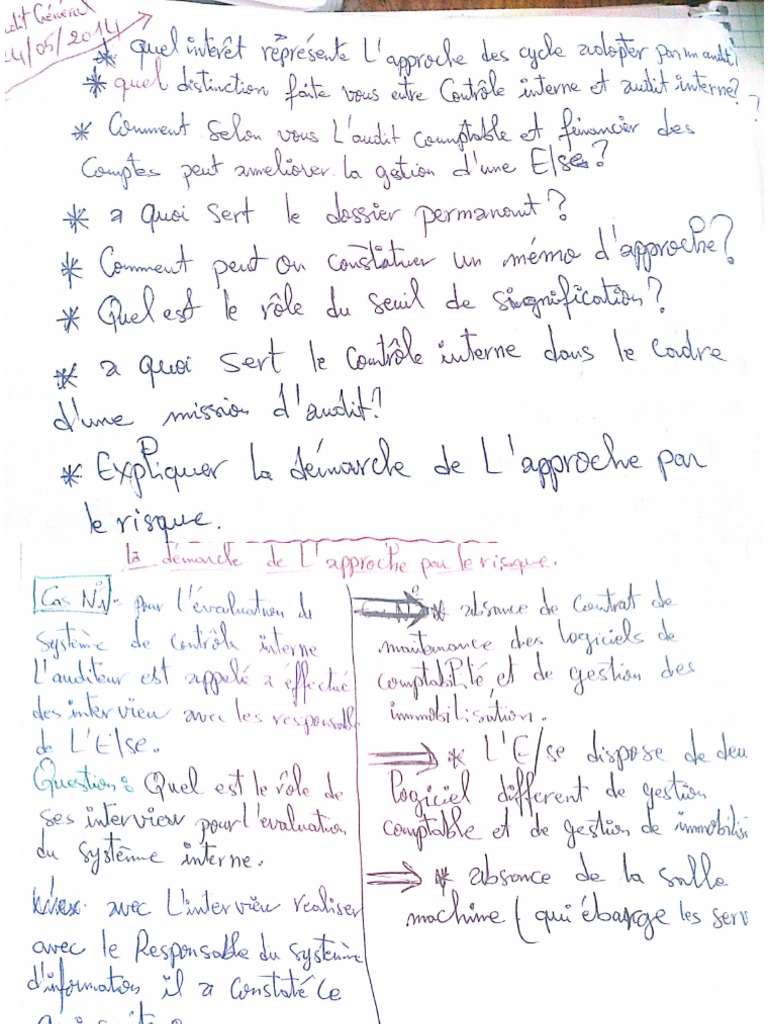 Audit Général
24/05/2014
* quel interêt réprésente L'approche des cycle adopter par un audit?
* quel distinction faite vous entre Contrôle interne et audit interne?
* Comment selon vous L'audit comptable et financier des
Comptes peut ameliorer la gestion d'une E/se?
* a quoi sert le dossier permanant?
* Comment peut on constituer un mémo d'approche?
* Quel est le rôle du seuil de signification?
* a quoi sert le Contrôle interne dans le cadre
d'une mission d'audit?
* Expliquer la démarche de L'approche par
le risque.
la démarche de L'approche par le risque.
Cas N°1 - pour l'évaluation de
système de contrôle interne
L'auditeur est appelé a éffectué
des interview avec les responsable
de L'E/se.
Question: Quel est le rôle de
ses interview pour l'évaluation
du système interne.
avec L'interview realiser
avec le Responsable du système
d'information il a constaté Ce
qui suit :
* absance de Contrat de
maintenance des logiciels de
comptabilité et de gestion des
immobilisation.
* L'E/se dispose de deu
logiciel différent de gestion
comptable et de gestion de immobilisi
* absance de la salle
machine ( qui ébarge les serv